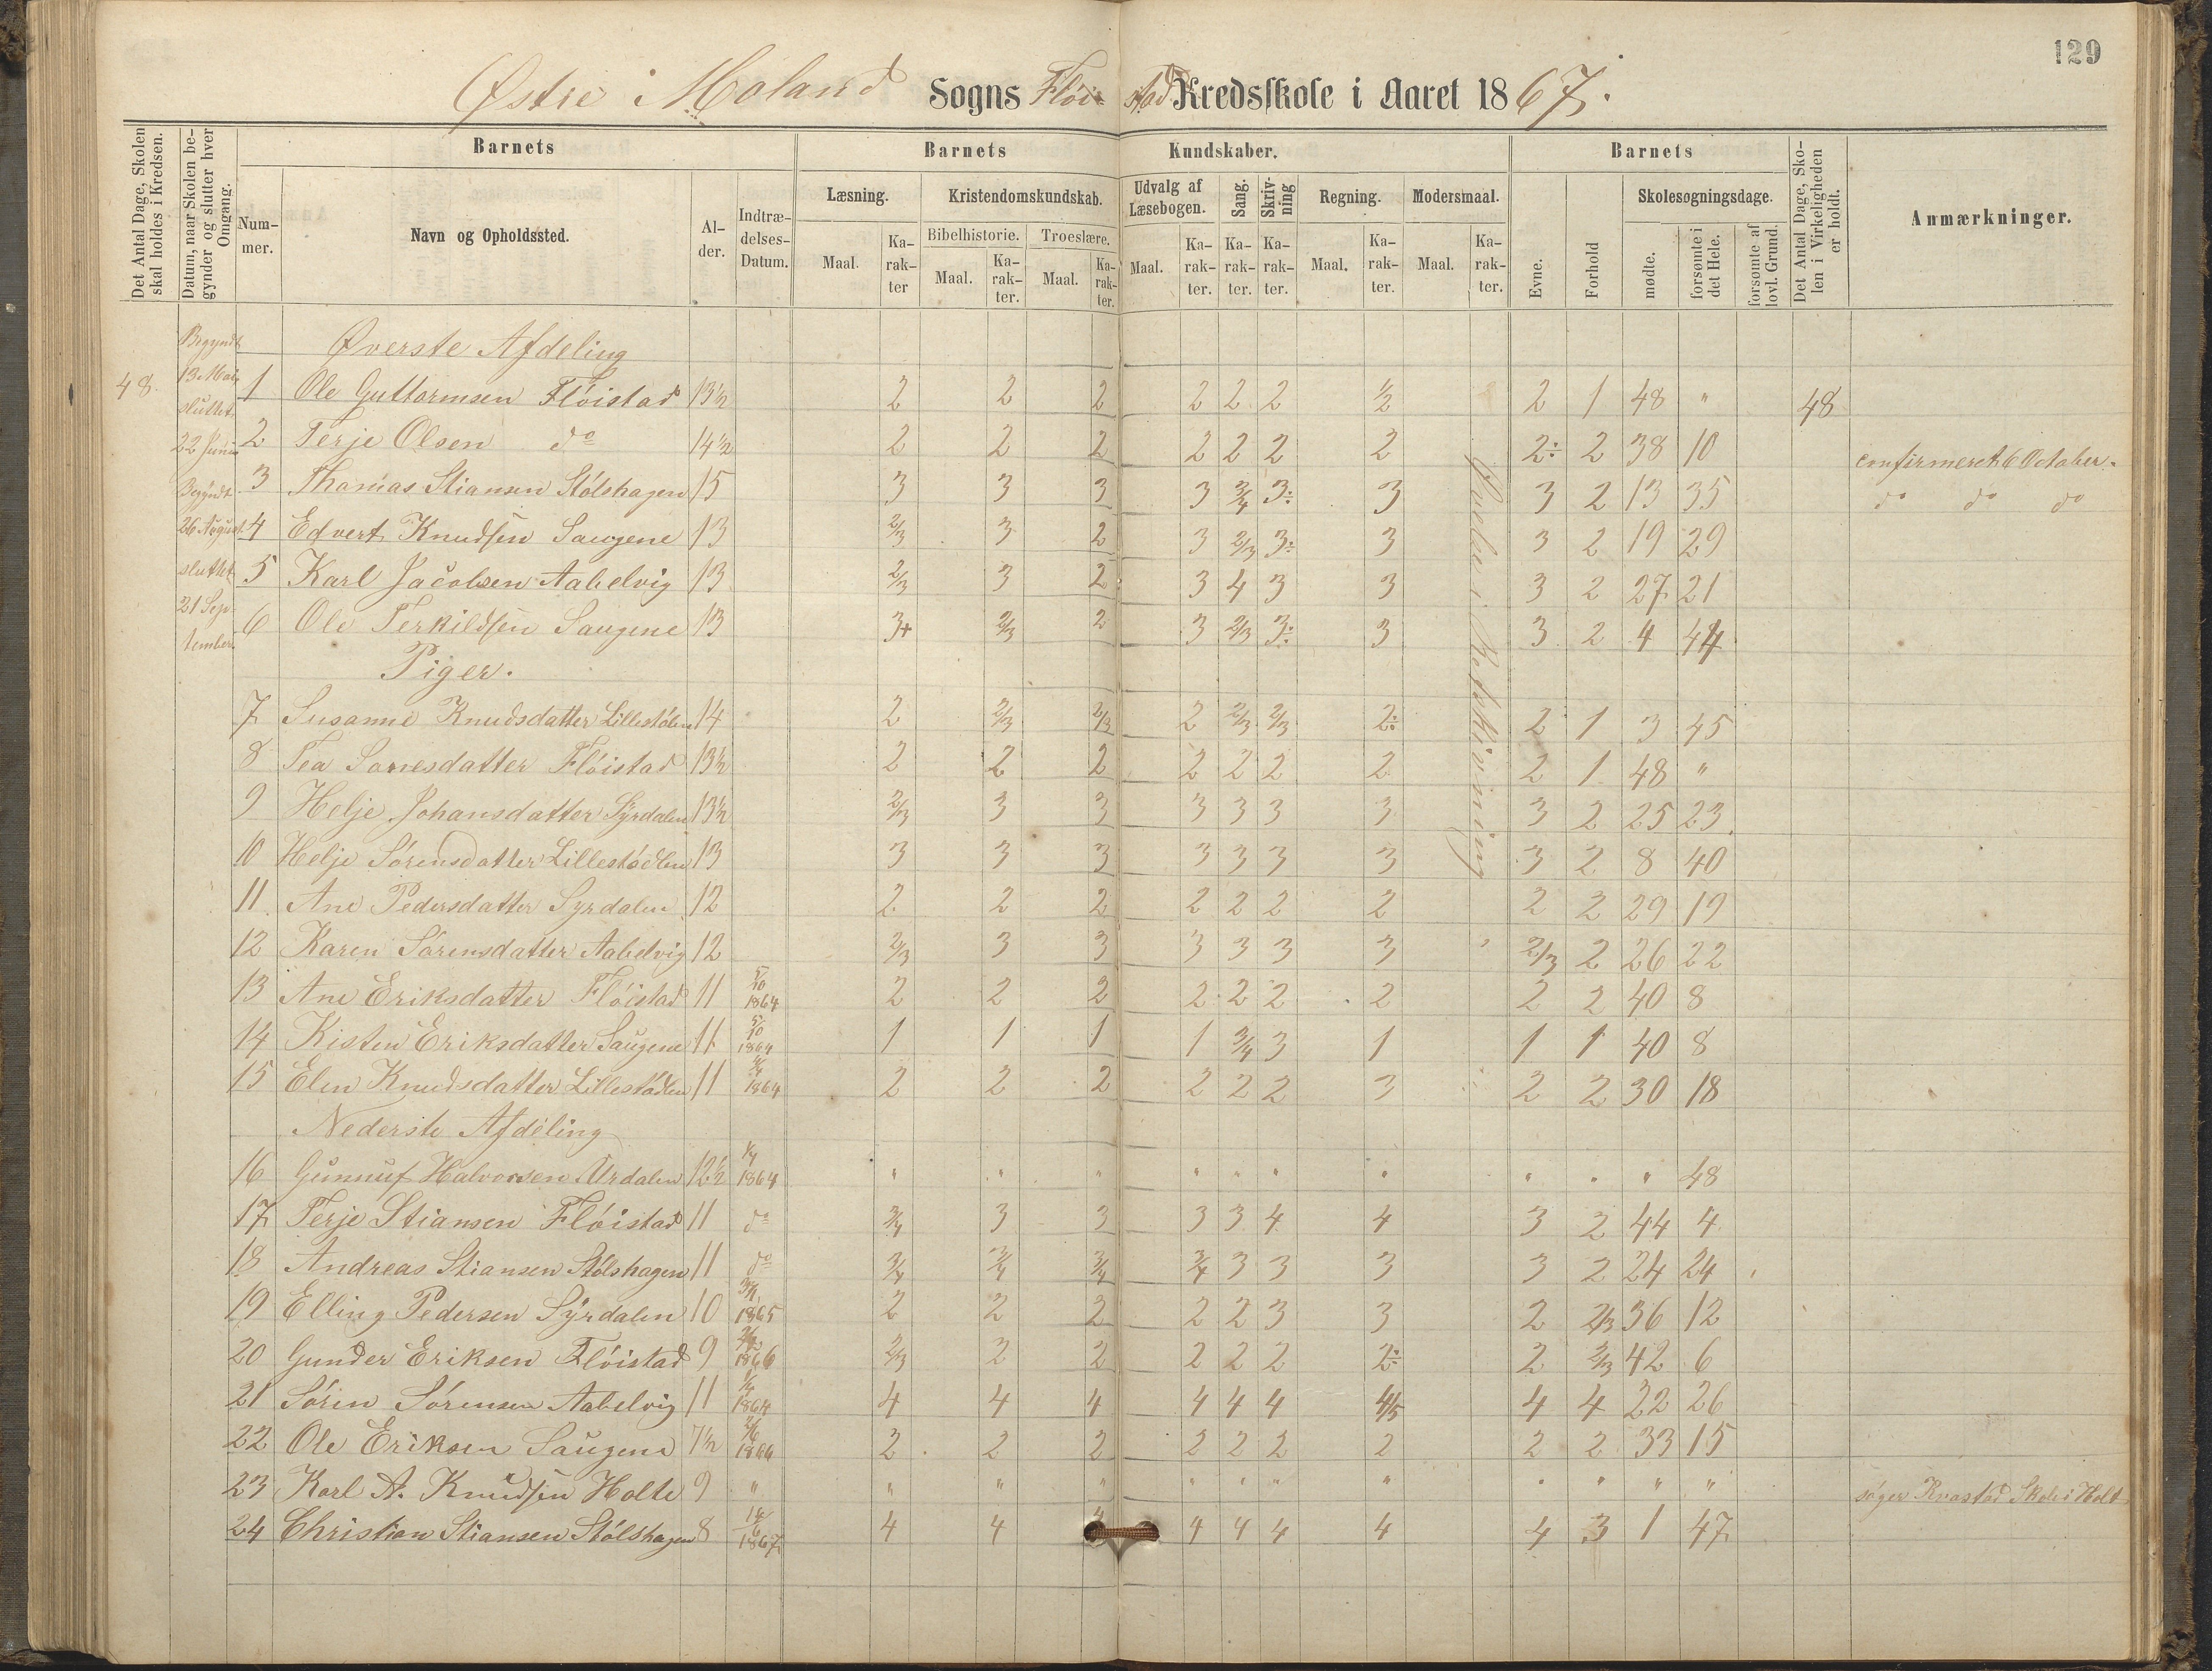 129
Østre Moland Sogns Flöistad Kredsskole i Aaret 1867.
Det Antal Dage, Skolen skal holdes i Kredsen.
Datum, naar Skolen begynder og slutter hver Omgang.
Barnets
Barnets Kundskaber.
Barnets
Nummer.
Navn og Opholdssted.
Alder.
Indtrædelses-Datum.
Læsning.
Kristendomskundskab.
Bibelhistorie.
Troeslære.
Udvalg af Læsebogen.
Sang.
Skrivning
Regning.
Modersmaal.
Maal. Karakter Maal. Karakter. Maal. Karakter. Maal. Karakter. Karakter. Karakter. Maal. Karakter. Maal. Karakter.
Evne.
Forhold
Skolesøgningsdage.
mødte.
forsømte i det Hele.
forsømte af lovl. Grund.
Det Antal Dage, Skolen i Virkeligheden er holdt.
Anmærkninger.
48.
Begyndt
13 Mai
sluttet
22 Juni
Begyndt
26 August
sluttet
21 Sep-
tember.
Øverste Afdeling
1 Ole Guttormsen Flöistad 13½ 2 2 2 2 2 2 ½ 2 1 48 " 48
2 Terje Olsen do 14½ 2 2 2 2 2 2 2 2÷ 2 38 10 confirmeret 6 October.
3 Thomas Stiansen Stölshagen 15 3 3 3 3 3/4 3÷ 3 3 2 13 35 do do do
4 Edvert Knudsen Saugene 13 2/3 3 2 3 2/3 3÷ 3 3 2 19 29
5 Karl Jacobsen Aabelvig 13 2/3 3 2 3 4 3 3 3 2 27 21
6 Ole Terkildsen Saugene 13 3+ 2/3 2 3 2/3 3÷ 3 3 2 4 44
Piger.
7 Susanne Knudsdatter Lillestölen 14 2 2/3 2/3 2 2/3 2/3 2÷ 2 1 3 45
8 Tea Sorresdatter Flöistad 13½ 2 2 2 2 2 2 2 2 1 48 "
9 Helje Johansdatter Syrdalen 13½ 2/3 3 3 3 3 3 3 3 2 25 23
10 Helje Sörensdatter Lillestödlen 13 3 3 3 3 3 3 3 3 2 8 40
11 Ane Pedersdatter Syrdalen 12 2 2 2 2 2 2 2 2 2 29 19
12 Karen Sörensdatter Aabelvig 12 2/3 3 3 3 3 3 3 2/3 2 26 22
13 Ane Eriksdatter Flöistad 11 5/10 1864 2 2 2 2 2 2 2 2 2 40 8
14 Kisten Eriksdatter Saugene 11 5/10 1864 1 1 1 1 3/4 3 1 1 1 40 8
15 Elen Knudsdatter Lillestödlen 11 1864 2 2 2 2 2 2 3 2 2 30 18
Nederste Afdeling
16 Gunnuf Halvorsen Urdalen 12½ 1/4 1864 " " " " " " " " " " 48
17 Terje Stiansen Flöistad 11 do 3/4 3 3 3 3 4 4 3 2 44 4
18 Andreas Stiansen Stölshagen 11 do 3/4 3/4 3/4 3/4 3 3 3 3 2 24 24
19 Elling Pedersen Syrdalen 10 1865 2 2 2 2 2 3 3 2 2/3 36 12
20 Gunder Eriksen Flöistad 9 1866 2/3 2 2 2 2 2 2÷ 2 2/3 42 6
21 Sören Sörensen Aabelvig 11 1/4 1864 4 4 4 4 4 4 4/5 4 4 22 26
22 Ole Eriksen Saugene 7½ 1866 2 2 2 2 2 2 2 2 2 33 15
23 Karl A. Knudsen Holte 9 " " " " " " " " " " " " söger Kvastad Skole i Holt
24 Christian Stiansen Stölshagen 8 14/6 1867 4 4 4 4 4 4 4 4 3 1 47
Övelse i Retskrivning